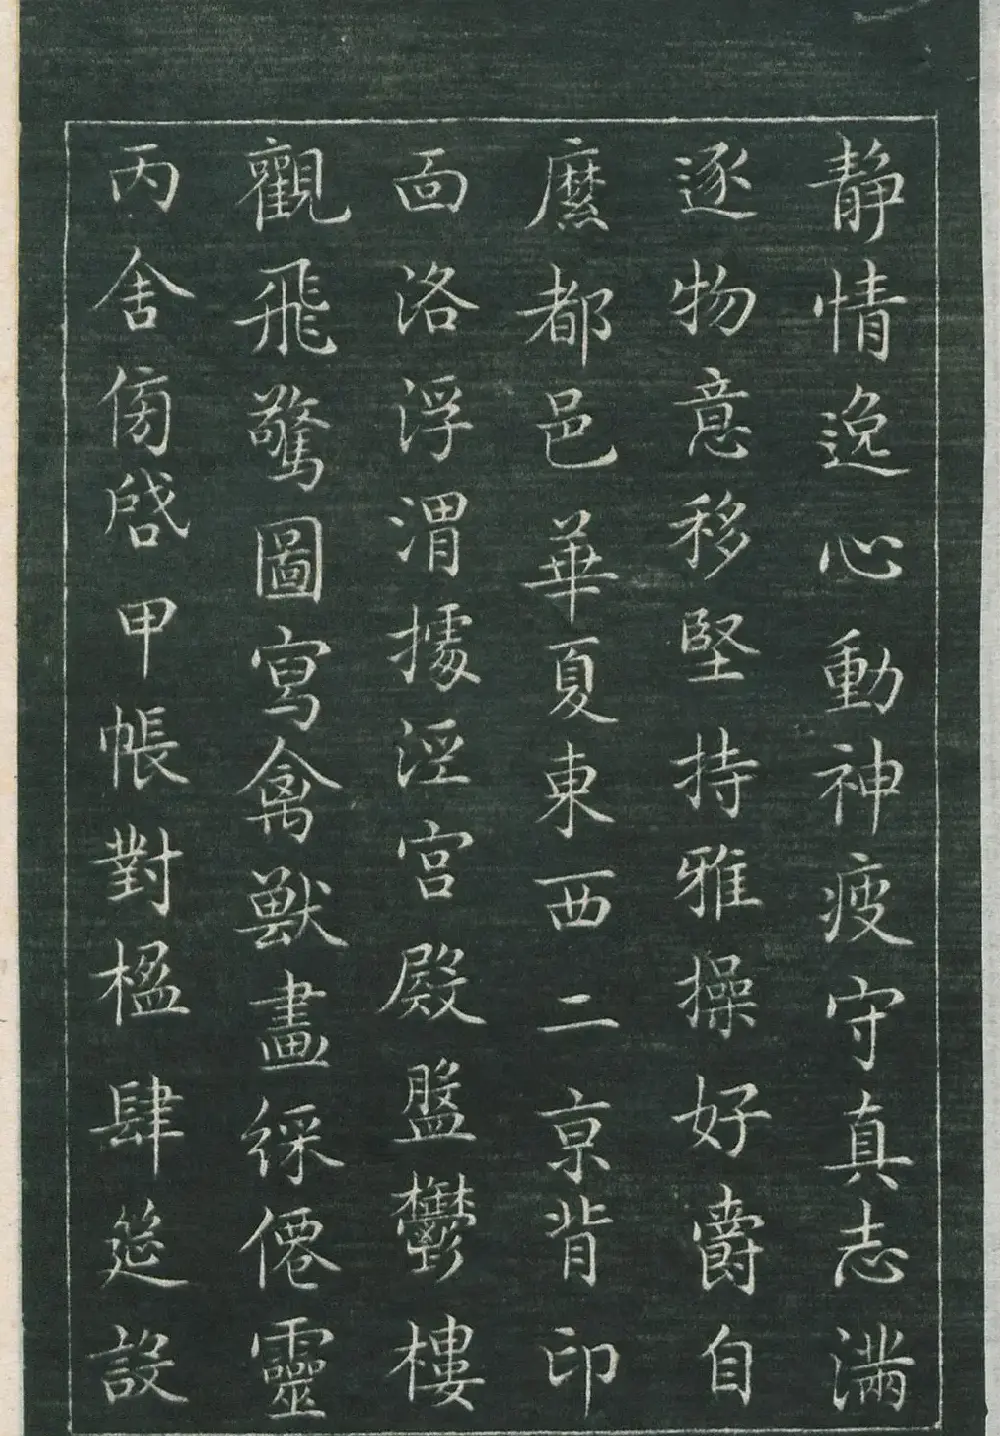 靜情逸心動神疲守真志滿
逐物意移堅持雅操好爵自
縻都邑華夏東西二京背邙
面洛浮渭據涇宮殿盤鬱樓
觀飛驚圖寫禽獸畫綵僊靈
丙舍傍啓甲帳對楹肆筵設